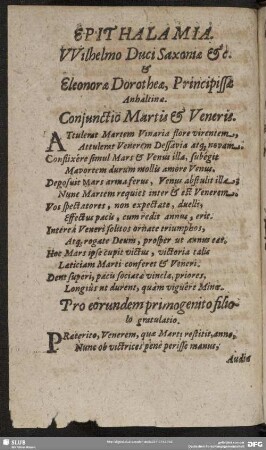 EPITHALAMIA
VVilhelmo Duci Saxoniæ &c.
&
Eleonoræ Dorotheæ, Principissæ
Anhaltinæ.
Conjunctio Martis & Veneris.
ATtulerat Martem Vinaria flore virentem,
Attulerat Venerem Dessavia atq; novam.
Conflixêre simul Mars & Venus illa, subêgit
Mavortem durum mollis amore Venus.
Deposuit Mars arma ferus, Venus abstulit illa;
Nunc Martem requiit inter & est Venerem.
Vos spectatores, non expectate, duelli,
Effectus pacis, cum redit annus, erit.
Intereà Veneri solitos ornate triumphos,
Atq; rogate Deum, prosper ut annus eat,
Hoc Mars ipse cupit victus, victoria talis
Lætitiam Marti conferet & Veneri.
Dent superi, pacis sociatæ vincla, priores,
Longiùs ut durent, quàm viguêre Minæ.
Pro eorundem primogenito filio
lo gratulatio.
PRæterito, Venerem, quæ Marti restitit, anno,
Nunc ob victrices penè perisse manus,
Audiit